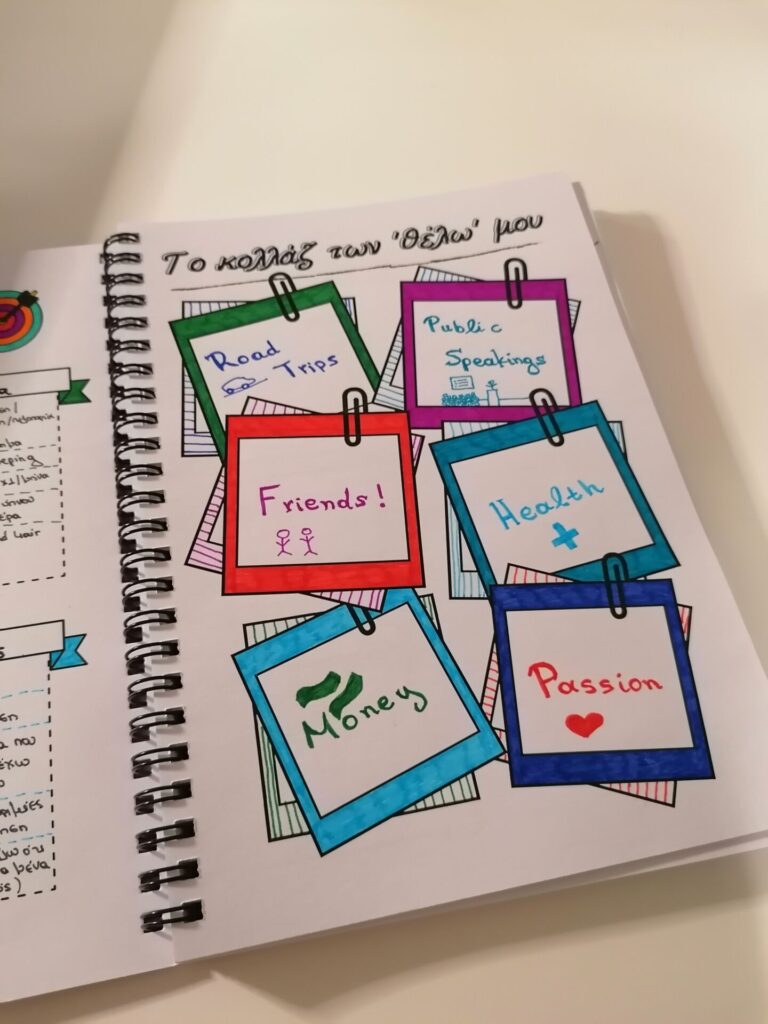 Το κολλάζ των 'θέλω' μου
Road
Trips
Public
Speakings
Friends!
Health
Money
Passion
α
ση
α που
έχω
ς)